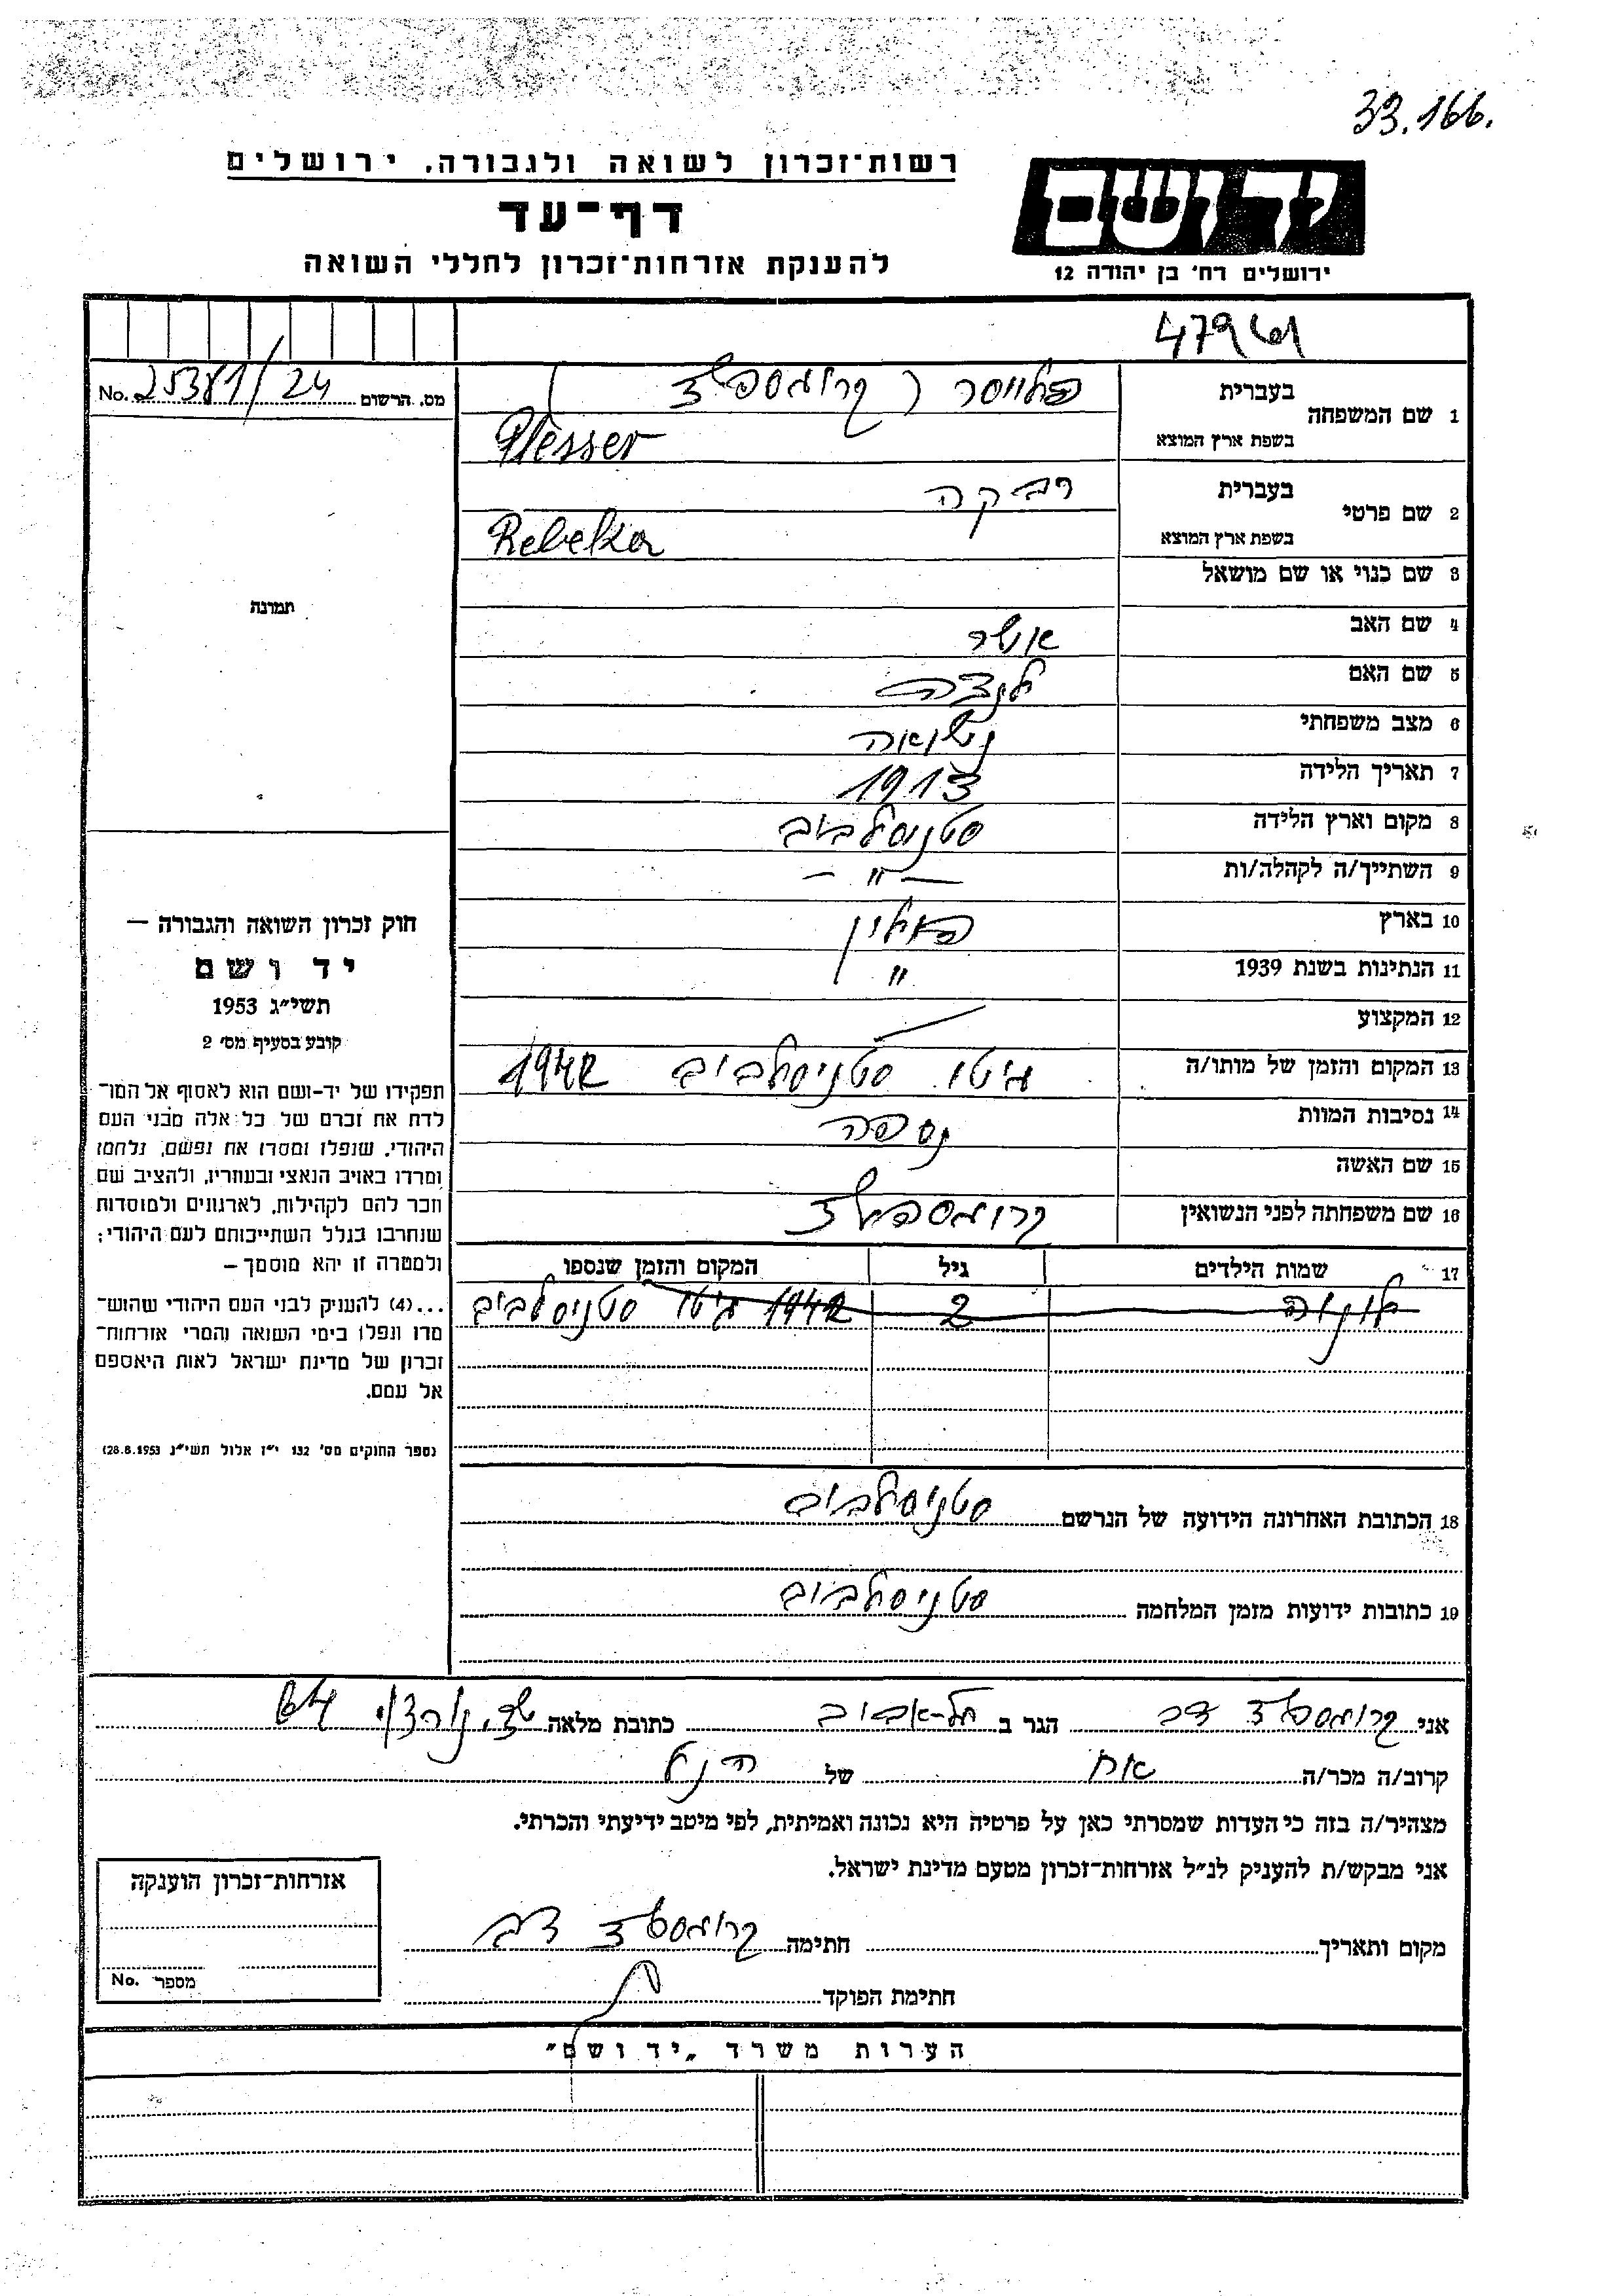 33.166.
רשות־זכרון לשואה ולגבורה, ירושלים
דף־עד
להענקת אזרחות־זכרון לחללי השואה
יד ושם
ירושלים רח' בן יהודה 12
479
מס. הרשום 25381/24 No.
1 שם המשפחה בעברית
בשפת ארץ המוצא Plesser
2 שם פרטי בעברית רבקה
בשפת ארץ המוצא Rebeka
3 שם כנוי או שם מושאל
4 שם האב אשר
5 שם האם
6 מצב משפחתי נשואה
7 תאריך הלידה 1913
8 מקום וארץ הלידה סטניסלבוב
9 השתייך/ה לקהלה/ות — " —
10 בארץ פולין
11 הנתינות בשנת 1939 "
12 המקצוע
13 המקום והזמן של מותו/ה גיטו סטניסלבוב 1942
14 נסיבות המוות נספה
15 שם האשה
16 שם משפחתה לפני הנשואין
17 שמות הילדים גיל המקום והזמן שנספו
2 1942 גיטו סטניסלבוב
18 הכתובת האחרונה הידועה של הנרשם סטניסלבוב
19 כתובות ידועות מזמן המלחמה סטניסלבוב
תמונה
חוק זכרון השואה והגבורה —
יד ושם
תשי״ג 1953
קובע בסעיף מס׳ 2
תפקידו של יד-ושם הוא לאסוף אל המו־
לדת את זכרם של כל אלה מבני העם
היהודי, שנפלו ומסרו את נפשם, נלחמו
ומרדו באויב הנאצי ובעוזריו, ולהציב שם
וזכר להם לקהילות, לארגונים ולמוסדות
שנחרבו בגלל השתייכותם לעם היהודי;
ולמטרה זו יהא מוסמך—
...(4) להעניק לבני העם היהודי שהוש־
מדו ונפלו בימי השואה והמרי אזרחות־
זכרון של מדינת ישראל לאות היאספם
אל עמם.
(ספר החוקים מס׳ 132 י״ז אלול תשי״ג 28.8.1953)
אני דב הגר ב תל-אביב כתובת מלאה שד. נורדוי 64
קרוב/ה מכר/ה אח של הנ״ל
מצהיר/ה בזה כי העדות שמסרתי כאן על פרטיה היא נכונה ואמיתית, לפי מיטב ידיעתי והכרתי.
אני מבקש/ת להעניק לנ״ל אזרחות־זכרון מטעם מדינת ישראל.
מקום ותאריך חתימה דב
חתימת הפוקד
אזרחות־זכרון הוענקה
מספר No.
הערות משרד „יד ושם״